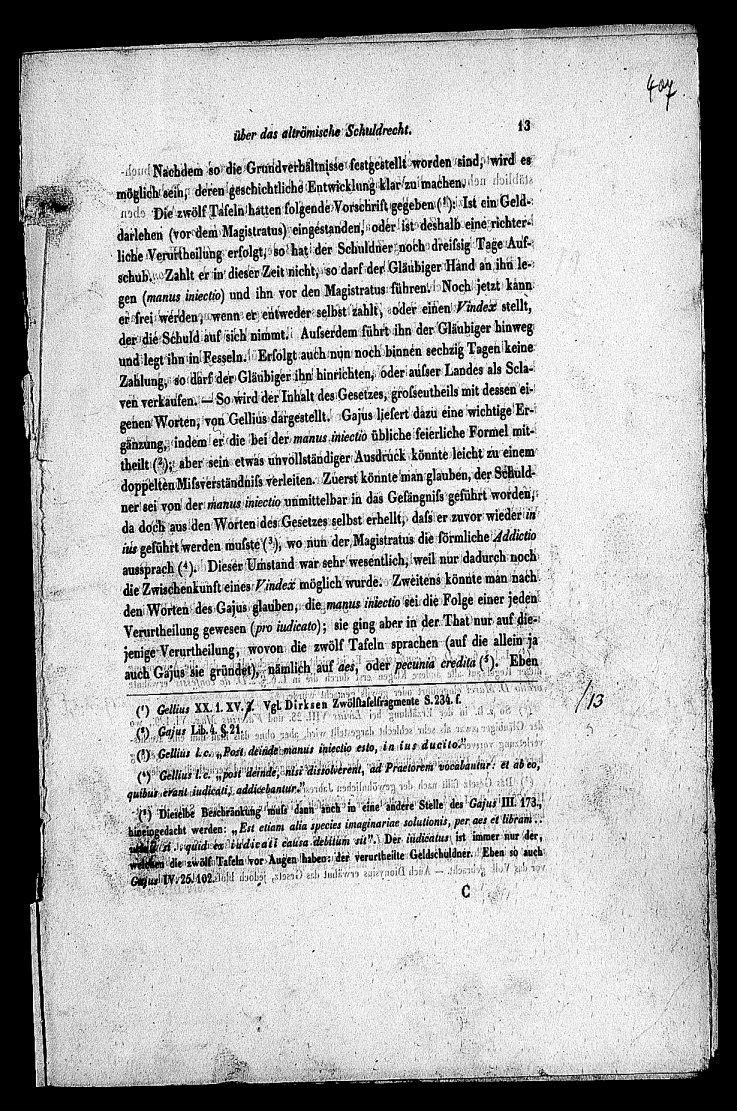 407
über das altrömische Schuldrecht. 13
Nachdem so die Grundverhältnisse festgestellt worden sind, wird es
möglich sein, deren geschichtliche Entwicklung klar zu machen.
Die zwölf Tafeln hatten folgende Vorschrift gegeben (¹): Ist ein Geld-
darlehen (vor dem Magistratus) eingestanden, oder ist deshalb eine richter-
liche Verurtheilung erfolgt, so hat der Schuldner noch dreiſsig Tage Auf-
schub. Zahlt er in dieser Zeit nicht, so darf der Gläubiger Hand an ihn le-
gen (manus iniectio) und ihn vor den Magistratus führen. Noch jetzt kann
er frei werden, wenn er entweder selbst zahlt, oder einen Vindex stellt,
der die Schuld auf sich nimmt. Auſserdem führt ihn der Gläubiger hinweg
und legt ihn in Fesseln. Erfolgt auch nun noch binnen sechzig Tagen keine
Zahlung, so darf der Gläubiger ihn hinrichten, oder auſser Landes als Scla-
ven verkaufen. — So wird der Inhalt des Gesetzes, groſsentheils mit dessen ei-
genen Worten, von Gellius dargestellt. Gajus liefert dazu eine wichtige Er-
gänzung, indem er die bei der manus iniectio übliche feierliche Formel mit-
theilt (²); aber sein etwas unvollständiger Ausdruck könnte leicht zu einem
doppelten Miſsverständniſs verleiten. Zuerst könnte man glauben, der Schuld-
ner sei von der manus iniectio unmittelbar in das Gefängniſs geführt worden,
da doch aus den Worten des Gesetzes selbst erhellt, daſs er zuvor wieder in
ius geführt werden muſste (³), wo nun der Magistratus die förmliche Addictio
aussprach (⁴). Dieser Umstand war sehr wesentlich, weil nur dadurch noch
die Zwischenkunft eines Vindex möglich wurde. Zweitens könnte man nach
den Worten des Gajus glauben, die manus iniectio sei die Folge einer jeden
Verurtheilung gewesen (pro iudicato); sie ging aber in der That nur auf die-
jenige Verurtheilung, wovon die zwölf Tafeln sprachen (auf die allein ja
auch Gajus sie gründet), nämlich auf aes, oder pecunia credita (⁵). Eben
(¹) Gellius XX. 1. XV. Vgl. Dirksen Zwölftafelfragmente S. 234. f.
/13
(²) Gajus Lib. 4. §. 21.
(³) Gellius l. c. „Post deinde manus iniectio esto, in ius ducito.”
(⁴) Gellius l. c. „post deinde, nisi dissolverent, ad Praetorem vocabantur: et ab eo,
quibus erant iudicati, addicebantur.”
(⁵) Dieselbe Beschränkung muſs dann auch in eine andere Stelle des Gajus III. 173.,
hineingedacht werden: „Est etiam alia species imaginariae solutionis, per aes et libram ..
si .. quid ex iudicati causa debitum sit”. Der iudicatus ist immer nur der,
welchen die zwölf Tafeln vor Augen haben: der verurtheilte Geldschuldner. Eben so auch
Gajus IV. 25. 102.
C